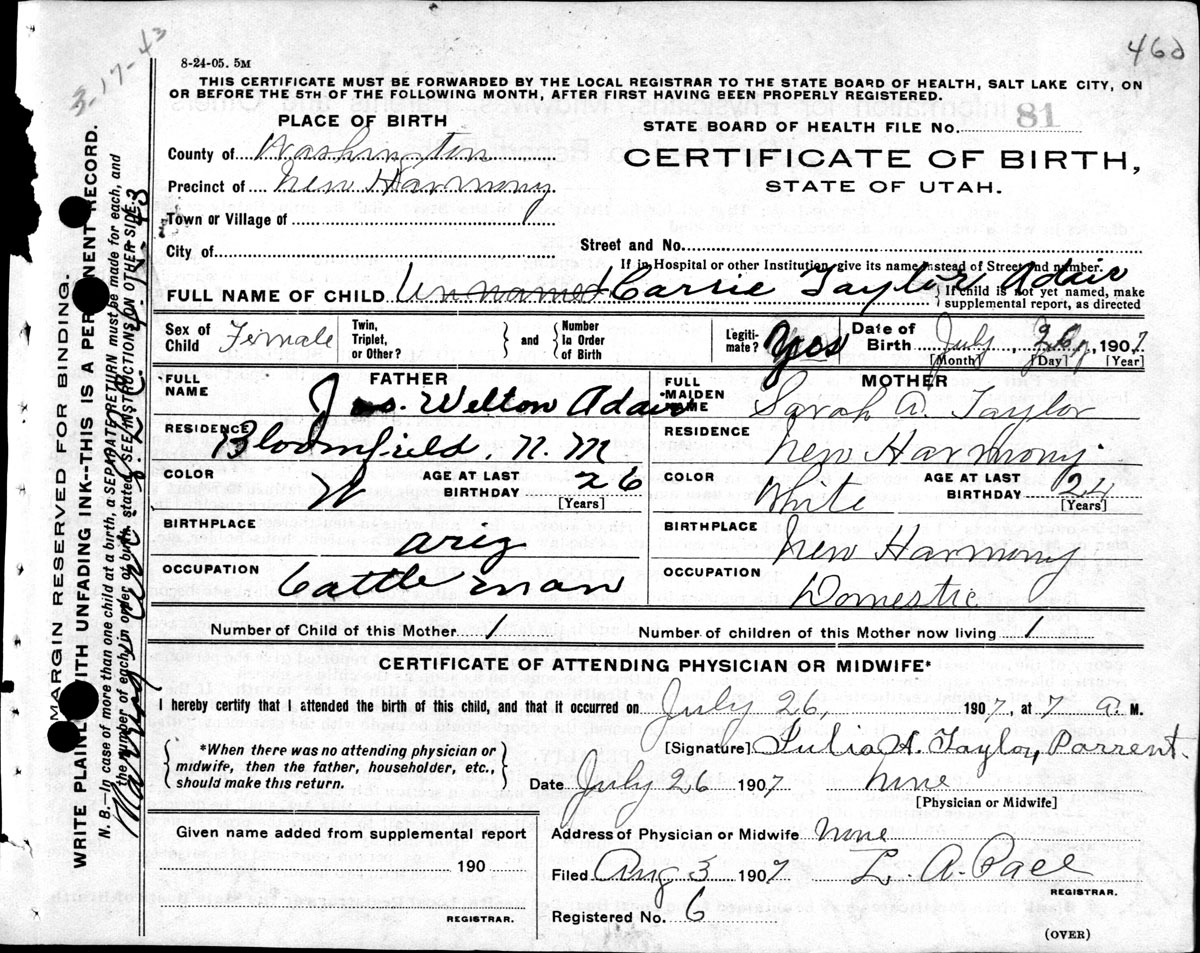 3-17-43
460
8-24-05. 5M
THIS CERTIFICATE MUST BE FORWARDED BY THE LOCAL REGISTRAR TO THE STATE BOARD OF HEALTH, SALT LAKE CITY, ON
OR BEFORE THE 5TH OF THE FOLLOWING MONTH, AFTER FIRST HAVING BEEN PROPERLY REGISTERED.
PLACE OF BIRTH
STATE BOARD OF HEALTH FILE No. 81
County of Washington
CERTIFICATE OF BIRTH,
Precinct of New Harmony
STATE OF UTAH.
Town or Village of
City of
Street and No.
If in Hospital or other Institution, give its name instead of Street and number.
FULL NAME OF CHILD Unnamed Carrie Taylor Adair
If child is not yet named, make
supplemental report, as directed
Sex of Child Female
Twin, Triplet, or Other?
and
Number In Order of Birth
Legiti-mate? Yes
Date of Birth July 26, 1907
[Month] [Day] [Year]
FATHER
FULL NAME Jas. Welton Adair
RESIDENCE Bloomfield, N. M
COLOR W
AGE AT LAST BIRTHDAY 26
[Years]
BIRTHPLACE ariz
OCCUPATION Cattle man
MOTHER
FULL MAIDEN NAME Sarah A. Taylor
RESIDENCE New Harmony
COLOR White
AGE AT LAST BIRTHDAY 24
[Years]
BIRTHPLACE New Harmony
OCCUPATION Domestic
Number of Child of this Mother 1
Number of children of this Mother now living 1
CERTIFICATE OF ATTENDING PHYSICIAN OR MIDWIFE*
I hereby certify that I attended the birth of this child, and that it occurred on July 26, 1907, at 7 a. M.
*When there was no attending physician or
midwife, then the father, householder, etc.,
should make this return.
[Signature] Julia A. Taylor, Parrent.
Date July 26 1907 none
[Physician or Midwife]
Given name added from supplemental report
190
REGISTRAR.
Address of Physician or Midwife none
Filed Aug 3 1907 L. A. Pace
REGISTRAR.
Registered No. 6
(OVER)
MARGIN RESERVED FOR BINDING.
WRITE PLAINLY WITH UNFADING INK--THIS IS A PERMANENT RECORD.
N. B.—In case of more than one child at a birth, a SEPARATE RETURN must be made for each, and
the number of each, in order of birth, stated. SEE INSTRUCTIONS ON OTHER SIDE.